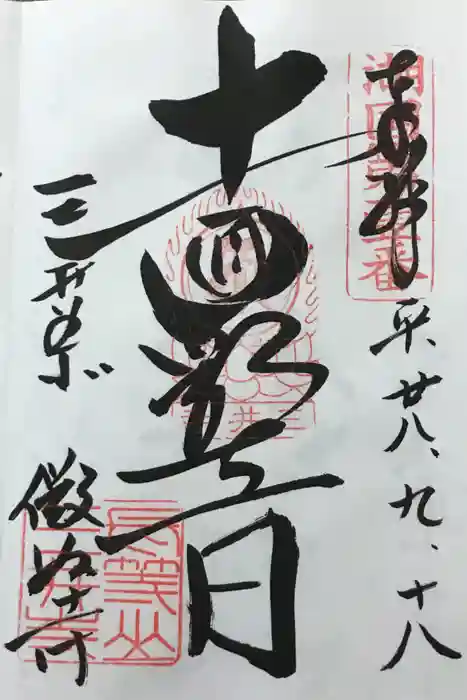 奉拝
平、廿八、九、十八
十一面観音
三井寺
微妙寺
長等山
三井寺